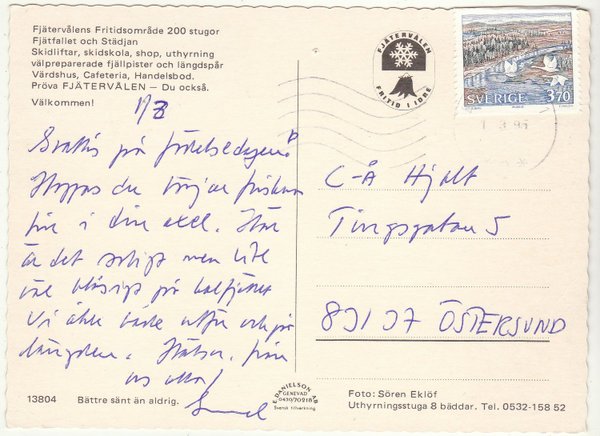 Fjätervålens Fritidsområde 200 stugor
Fjätfallet och Städjan
Skidliftar, skidskola, shop, uthyrning
välpreparerade fjällpister och längdspår
Värdshus, Cafeteria, Handelsbod.
Pröva FJÄTERVÅLEN — Du också.
Välkommen!
Grattis på födelsedagen!
Hoppas du börjar friskna
till i din axel. Här
är det soligt men lite
väl blåsigt på kalfjället
Vi åker både utför och på
längden. Hälsn. från
oss alla!
13804 Bättre sänt än aldrig.
FJÄTERVÅLEN
FRITID I IDRE
SVERIGE 3,70
C-Å Hjelt
Tingsgatan 5
831 37 ÖSTERSUND
E. DANIELSON AB
GENEVAD
0430/70218
Svensk tillverkning
Foto: Sören Eklöf
Uthyrningsstuga 8 bäddar. Tel. 0532-158 52